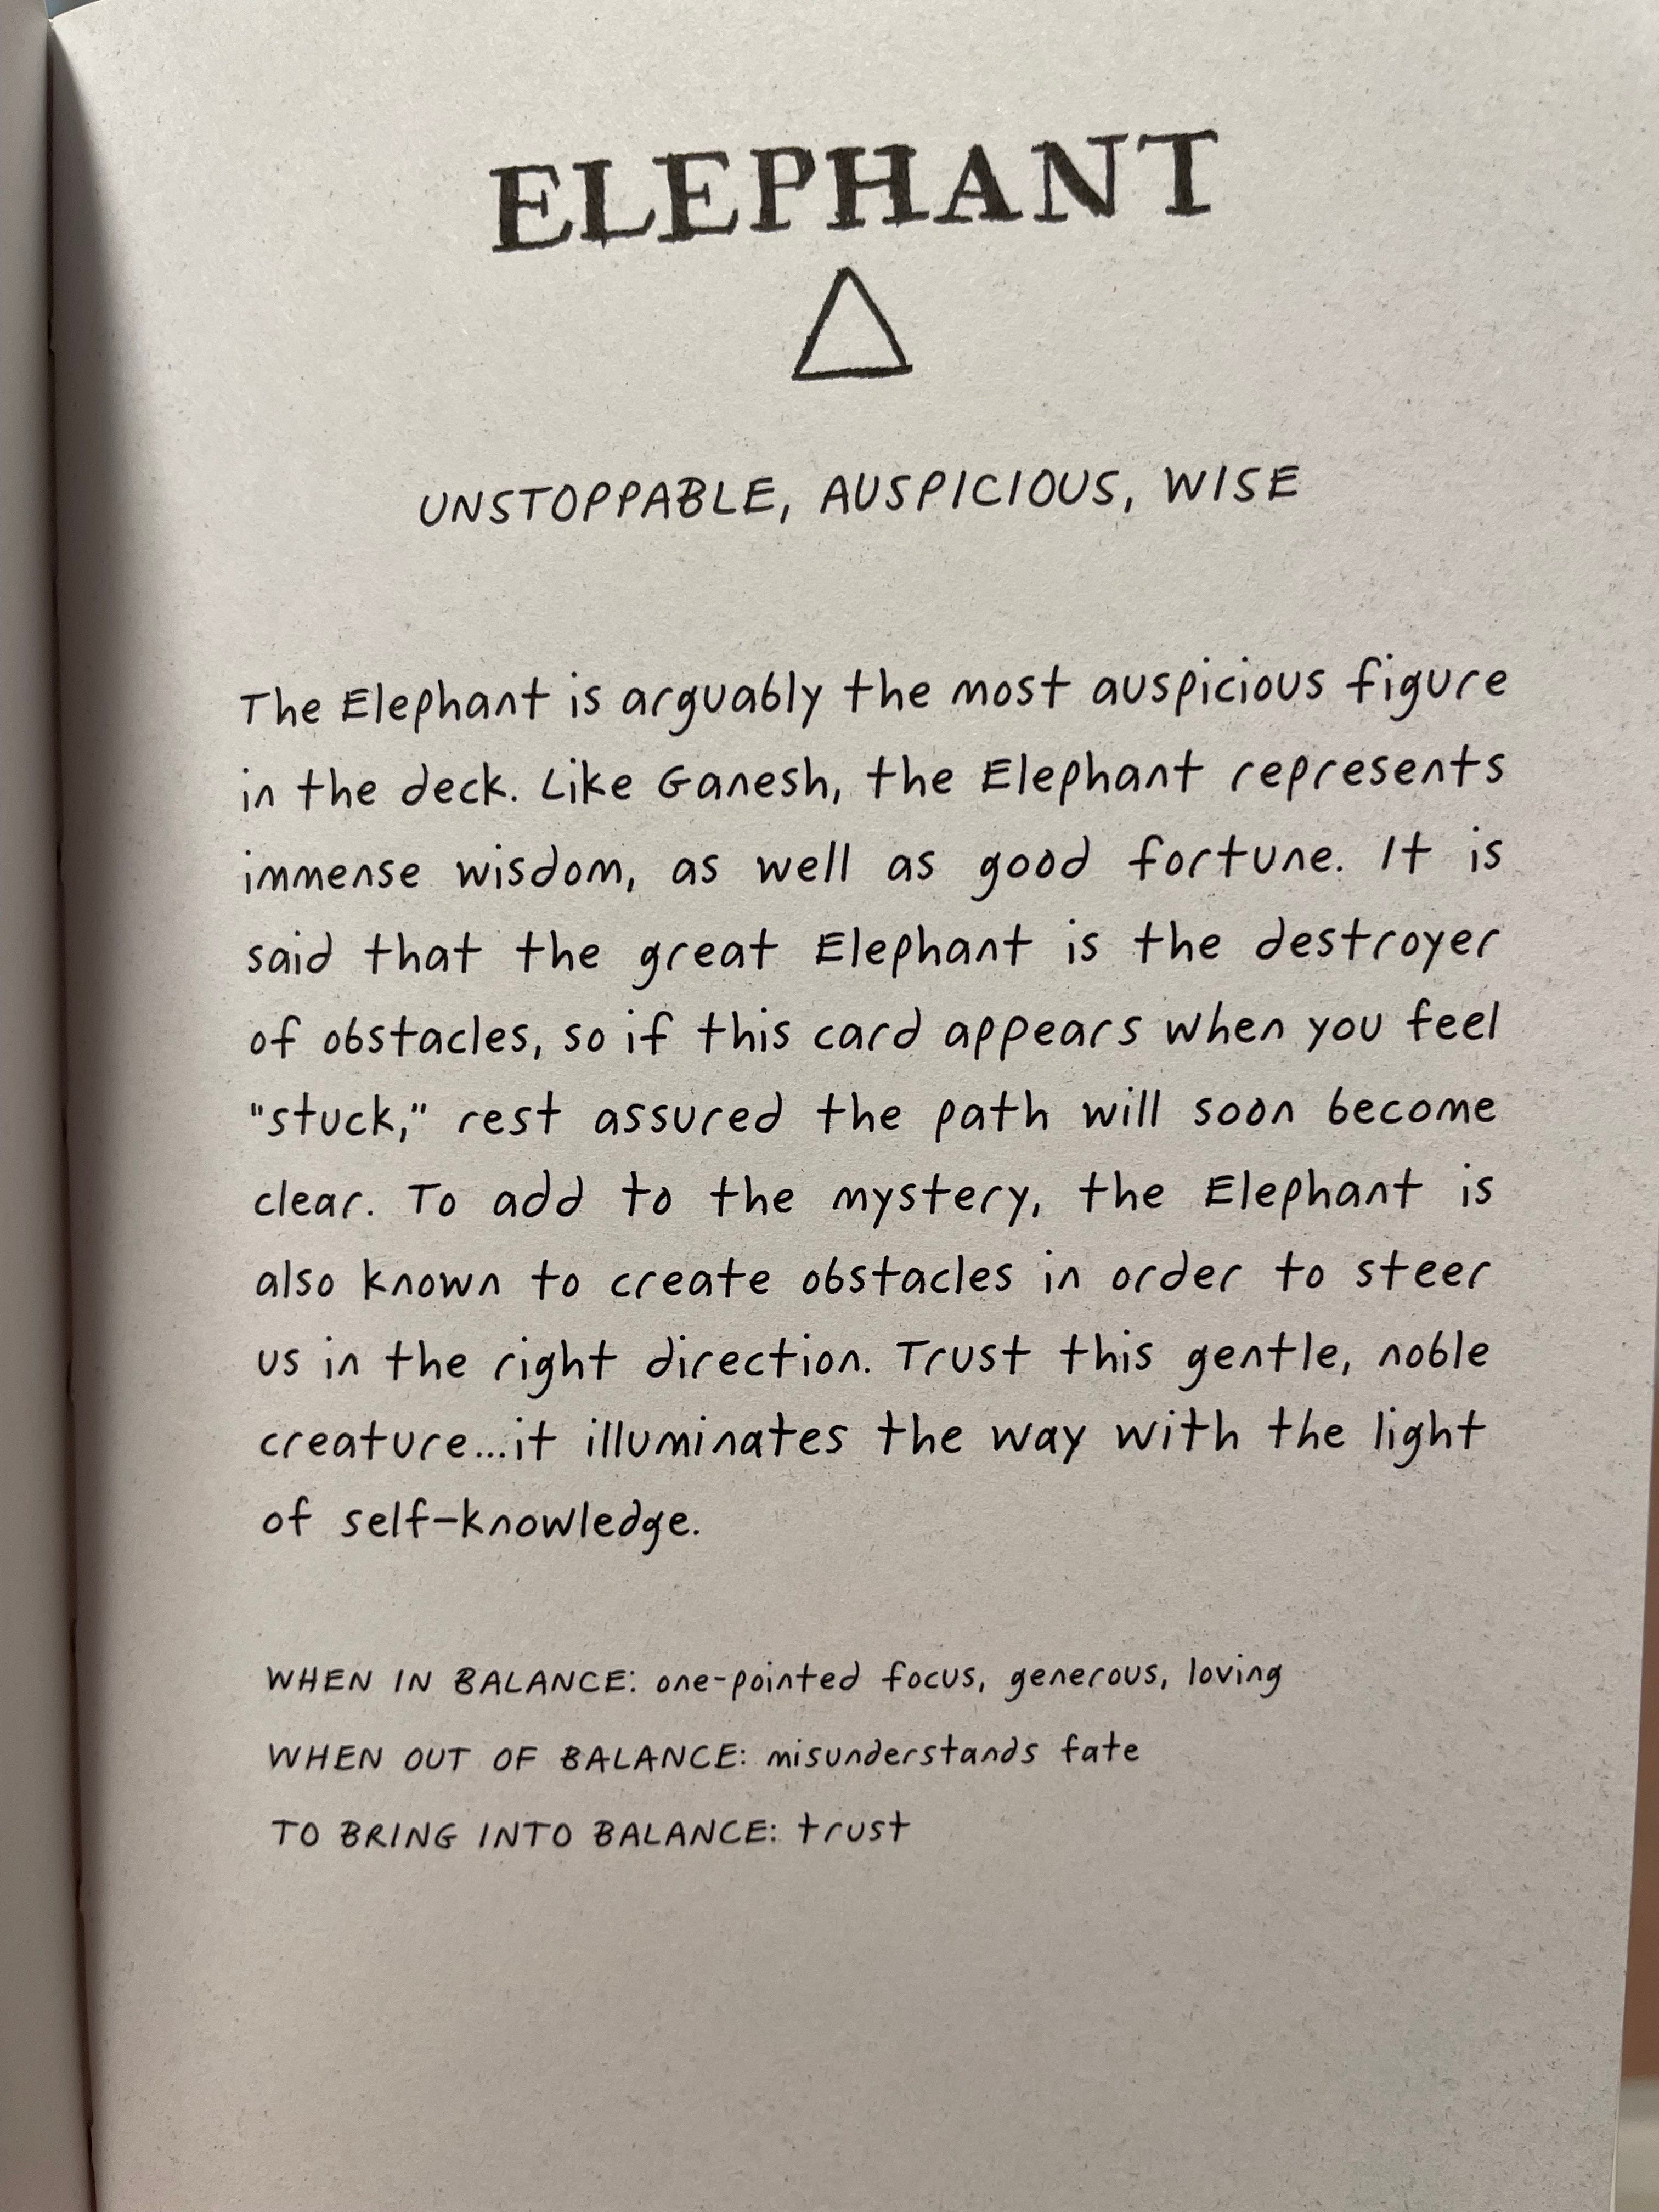 ELEPHANT
UNSTOPPABLE, AUSPICIOUS, WISE
The Elephant is arguably the most auspicious figure
in the deck. Like Ganesh, the Elephant represents
immense wisdom, as well as good fortune. It is
said that the great Elephant is the destroyer
of obstacles, so if this card appears when you feel
"stuck," rest assured the path will soon become
clear. To add to the mystery, the Elephant is
also known to create obstacles in order to steer
us in the right direction. Trust this gentle, noble
creature...it illuminates the way with the light
of self-knowledge.
WHEN IN BALANCE: one-pointed focus, generous, loving
WHEN OUT OF BALANCE: misunderstands fate
TO BRING INTO BALANCE: trust